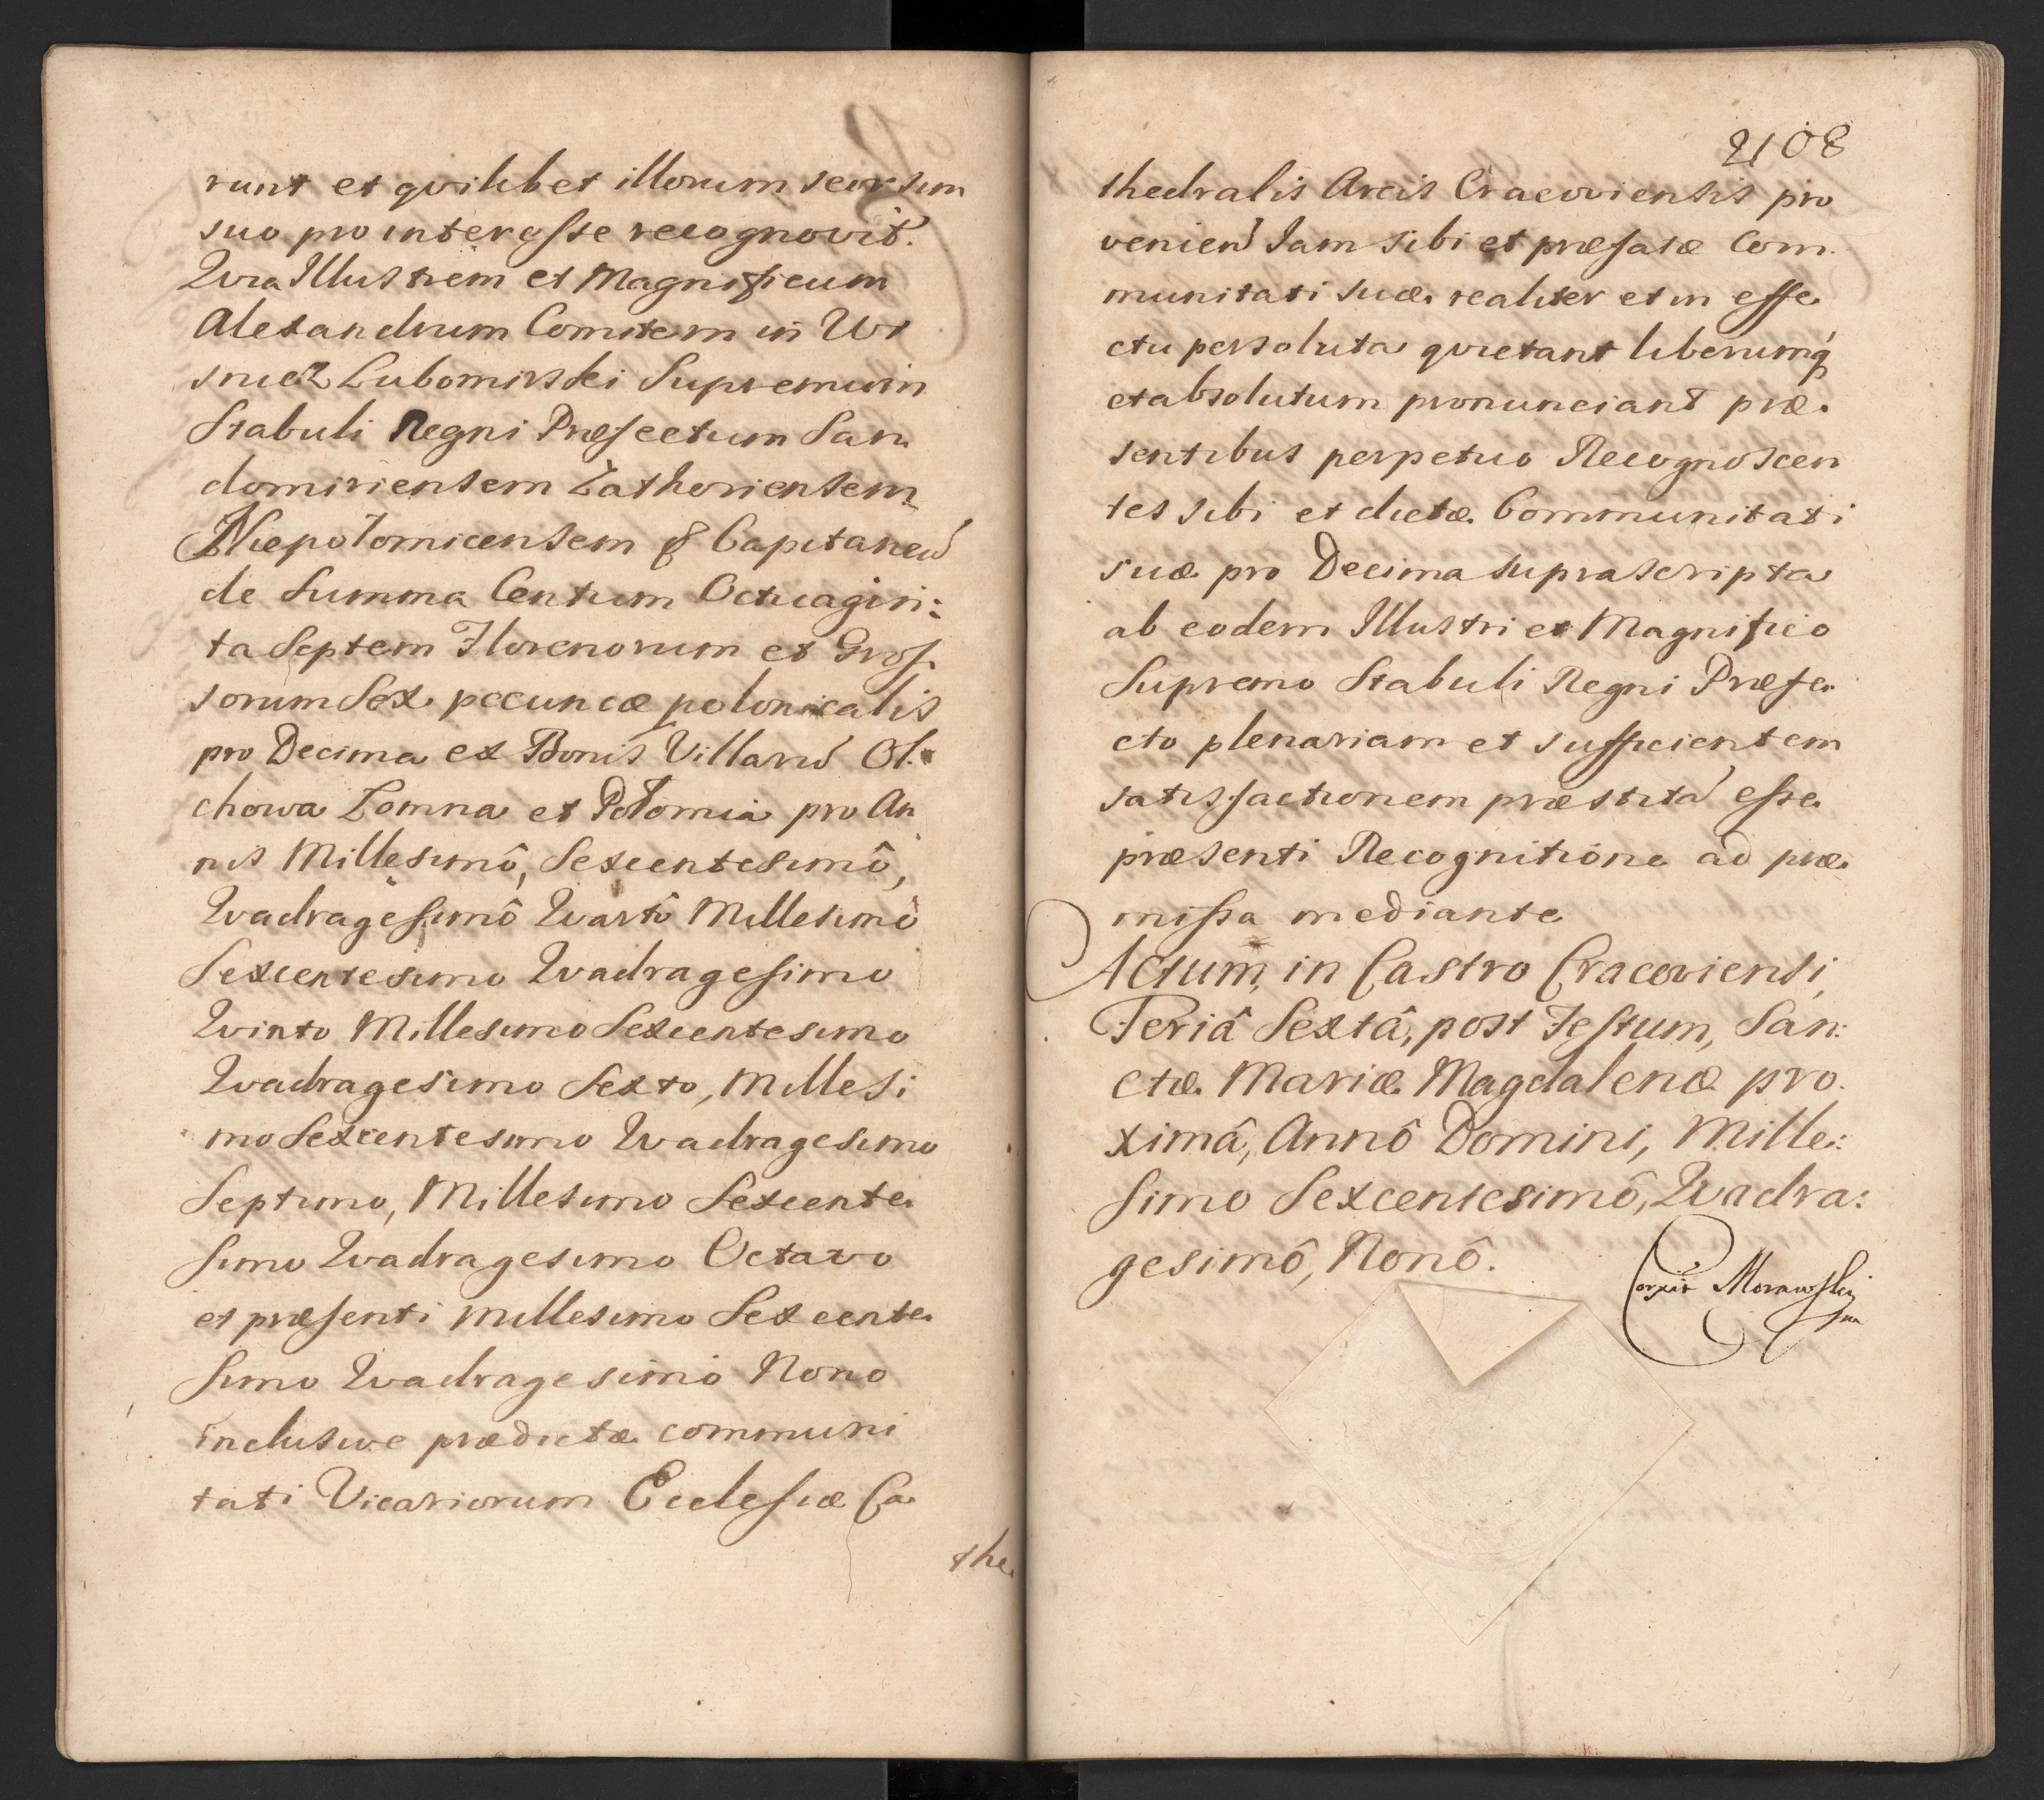 runt et qvilibet illorum seorsim
suo pro interesse recognovit.
Qvia Illustrem et Magnificum
Alexandrum Comitem in Wi
snicz Lubomirski Supremum
Stabuli Regni Præfectum San
domiriensem Zathoriensem
Niepolomicensem & Capitaneū
de Summa Centum Octuagin:
ta Septem Florenorum et Gros
sorum Sex pecuniæ polonicalis
pro Decima ex Bonis Villarū Ol
chowa Lomna et Polomia pro An
nis Millesimô, Sexcentesimô,
Qvadragesimô Qvartô Millesimô
Sexcentesimo Qvadragesimo
Qvinto Millesimo Sexcentesimo
Qvadragesimo Sexto, Millesi
mo Sexcentesimo Qvadragesimo
Septimo, Millesimo Sexcente
simo Qvadragesimo Octavo
et præsenti Millesimo Sexcente
simo Qvadragesimo Nono
inclusive prædictæ communi
tati Vicariorum Ecclesiæ Ca
the
2108
thedralis Arcis Cracoviensis pro
venien Iam sibi et præfatæ Com
munitati suæ realiter et in effe
ctu persoluta qvietant liberumq́
et absolutum pronunciant præ
sentibus perpetuo Recognoscen
tes sibi et dictæ Communitati
suæ pro Decima suprascripta
ab eodem Illustri et Magnifico
Supremo Stabuli Regni Præfe
cto plenariam et sufficientem
satisfactionem præstitā esse
præsenti Recognitione ad præ
missa mediante
Actum, in Castro Cracoviensi,
Feriâ Sextâ, post Festum, San:
ctæ Mariæ Magdalenæ pro
ximâ, Annô Domini, Mille:
simo Sexcentesimô, Qvadra:
gesimô, Nonô.
Corxit Morawski